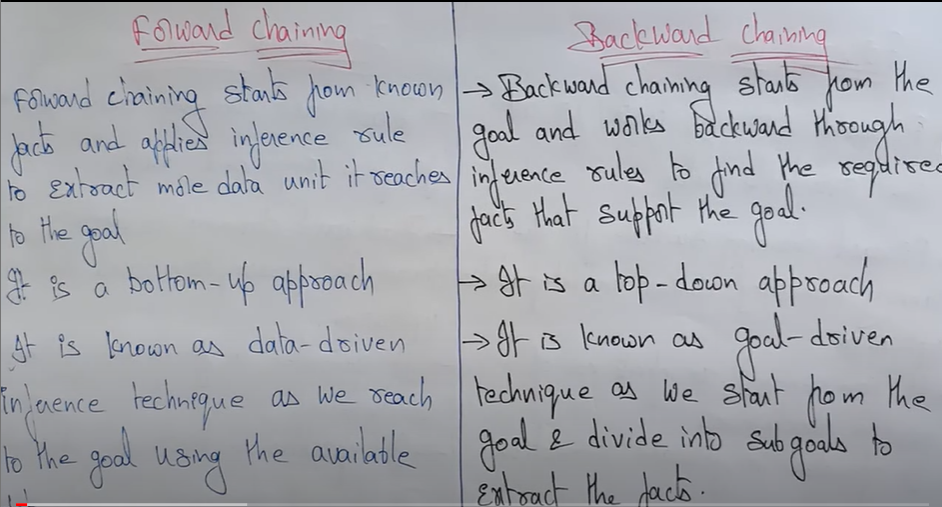 Forward chaining
Forward chaining starts from known
facts and applies inference rule
to extract more data unit it reaches
to the goal
It is a bottom-up approach
It is known as data-driven
inference technique as we reach
to the goal using the available
Backward chaining
→ Backward chaining starts from the
goal and works backward through
inference rules to find the required
facts that support the goal.
→ It is a top-down approach
→ It is known as goal-driven
technique as we start from the
goal & divide into sub goals to
extract the facts.